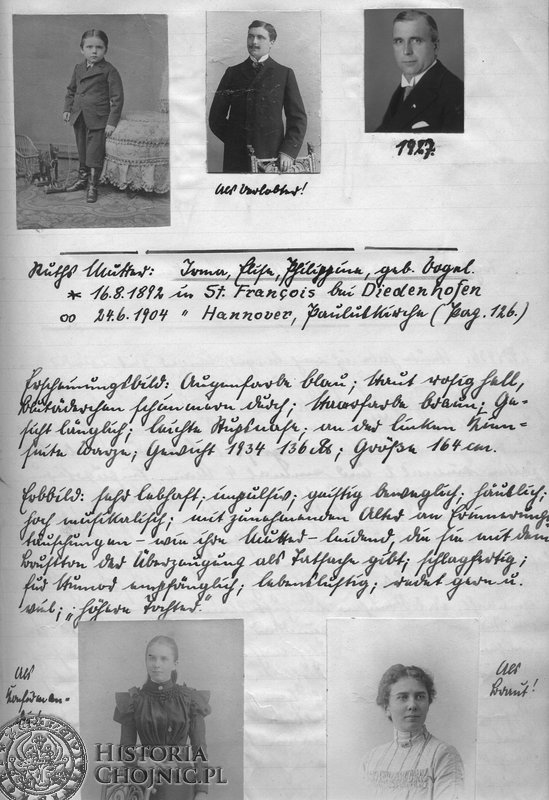 Als Verlobter!
1927.
Ruths Mutter: Irma, Elise, Philippine, geb. Vogel.
* 16.8.1892 in St. François bei Diedenhofen
∞ 24.6.1904 " Hannover, Pauluskirche (Pag. 126.)
Erscheinungsbild: Augenfarbe blau; Haut rosig hell,
Blutäderchen schimmern durch; Haarfarbe braun; Ge-
sicht länglich; leichte Stupsnase; an der linken Kinn-
seite Warze; Gewicht 1934 136 ℔; Größe 164 cm.
Erbbild: sehr lebhaft; impulsiv; geistig beweglich; häuslich;
hoch musikalisch; mit zunehmenden Alter an Erinnerungs-
täuschungen - wie ihre Mutter - leidend, die sie mit dem
Brustton der Überzeugung als Tatsache gibt; schlagfertig;
für Humor empfänglich; lebenslustig; redet gern u.
viel; "höhere Tochter"
Als
Konfirman-
Als
Braut!
HISTORIA
CHOJNIC.PL